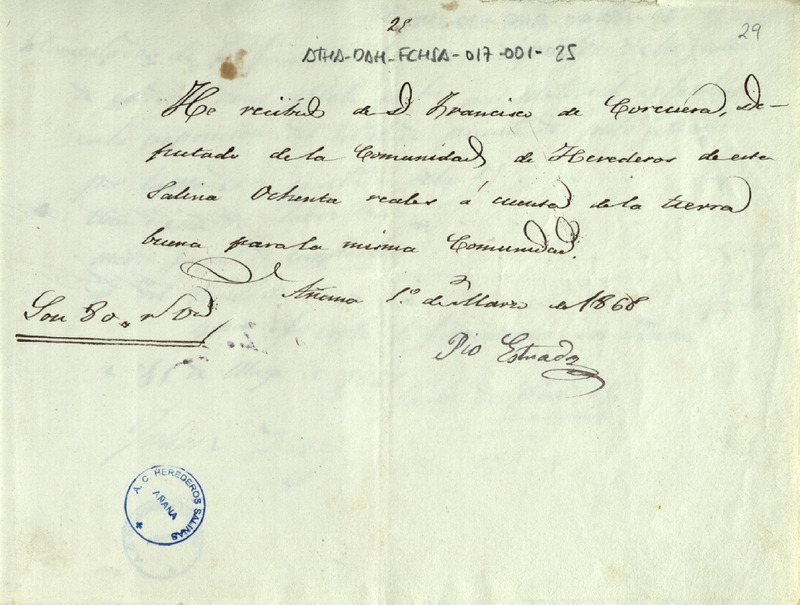 28
29
ATHA-DAH-FCHSA-017-001-25
He recibido de D. Francisco de Corcuera, De-
putado de la Comunidad de Herederos de esta
Salina Ochenta reales á cuenta de la tierra
buena para la misma Comunidad.
Añana 1.º de Marzo de 1868
Son 80 rs
Pio Estrada
A. C. HEREDEROS SALINAS
AÑANA